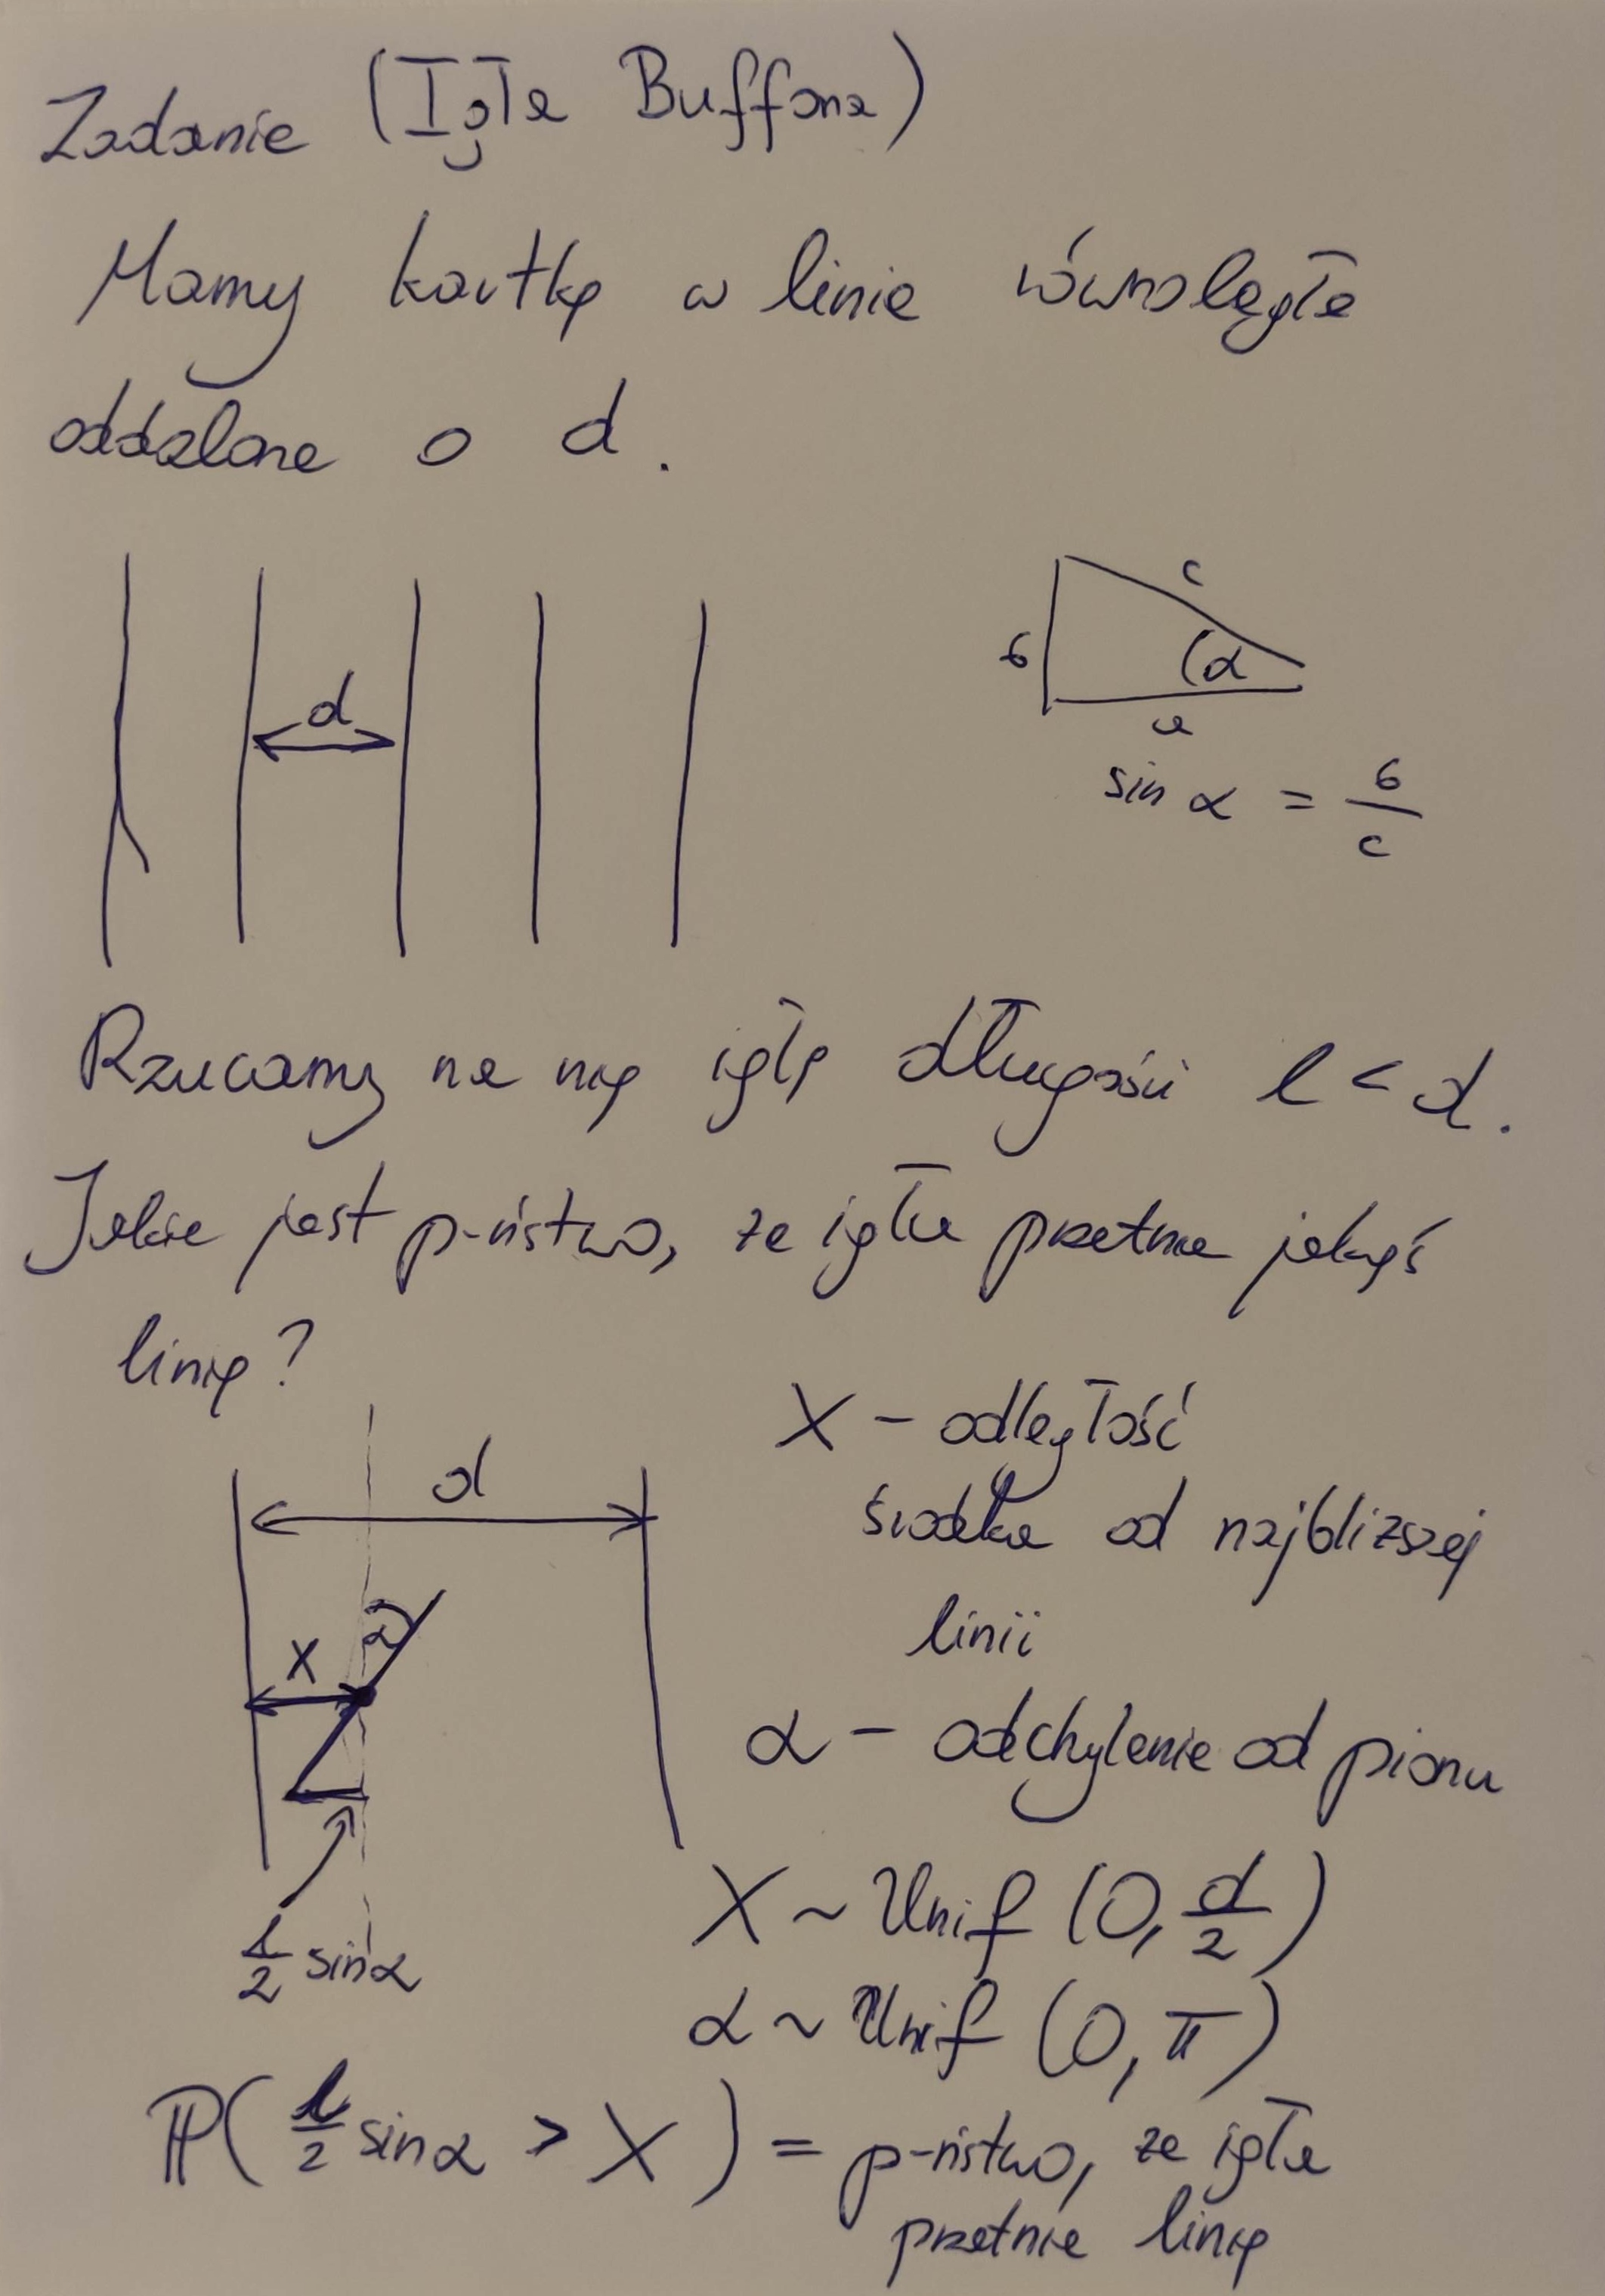 Zadanie (Igła Buffona)
Mamy kartkę w linie równoległe
oddalone o d.
d
c
b
α
a
sin α = b/c
Rzucamy na nią igłę długości l < d.
Jakie jest p-ństwo, że igła przetnie jakąś
linię?
X – odległość
środka od najbliższej
linii
d
α
X
α – odchylenie od pionu
l/2 sin α
X ~ Unif (0, d/2)
α ~ Unif (0, π)
ℙ( l/2 sin α > X ) = p-ństwo, że igła
przetnie linię